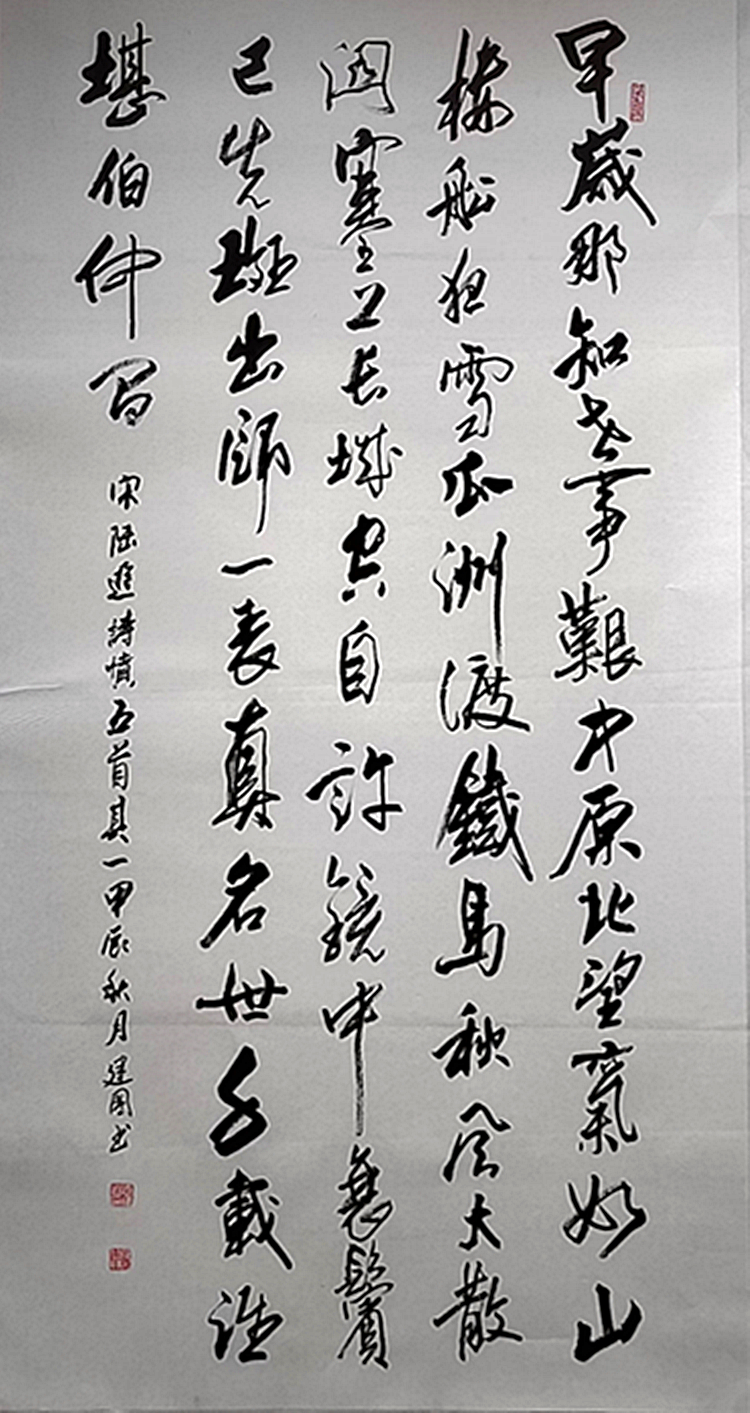 早歲那知世事艱中原北望氣如山
樓船夜雪瓜洲渡鐵馬秋風大散
關塞上長城空自許鏡中衰鬢
已先斑出師一表真名世千載誰
堪伯仲間
宋陸遊詩憤五首其一甲辰秋月建国书